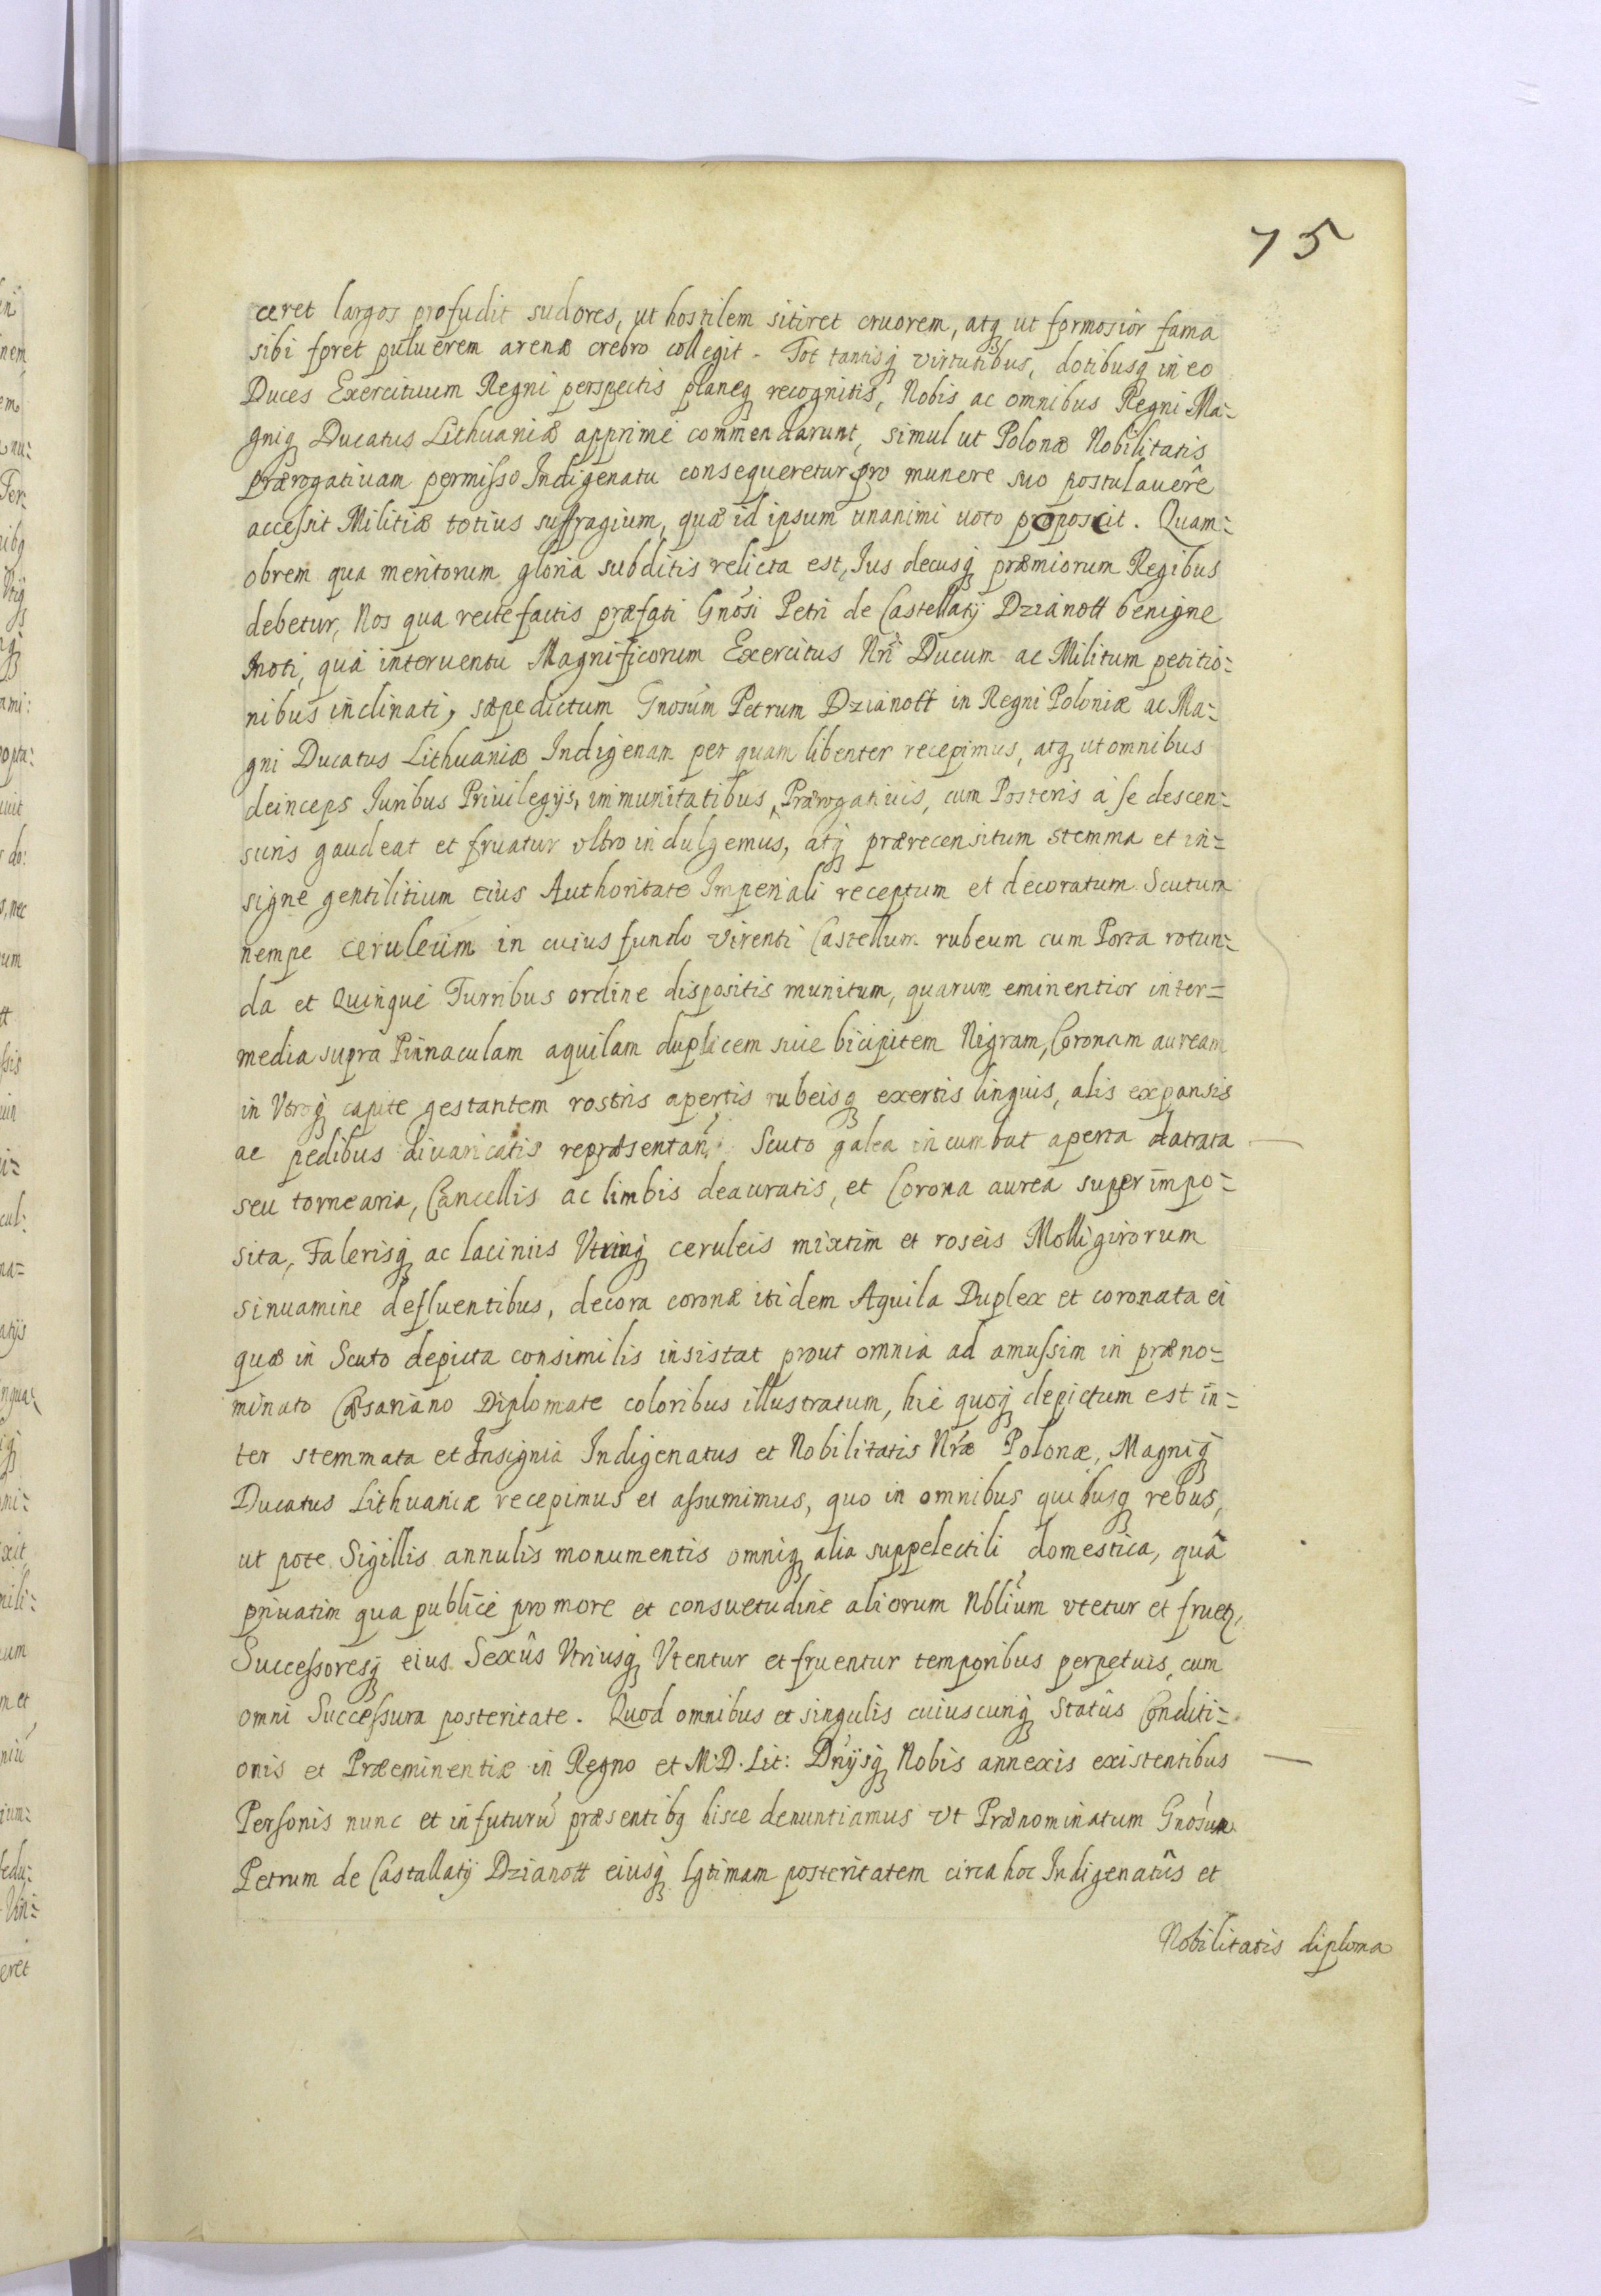 75
ceret largos profudit sudores, ut hostilem sitiret cruorem, atq ut formosior fama
sibi foret puluerem arenæ crebro collegit. Tot tantisq virtutibus, dotibusq in eo
Duces Exercituum Regni perspectis planeq recognitis, Nobis ac omnibus Regni Ma=
gniq Ducatus Lithuaniæ apprime commendarunt, simul ut Polonæ Nobilitatis
prærogatiuam permisso Indigenatu consequeretur pro munere suo postulauêre
accessit Militiæ totius suffragium, quæ id ipsum unanimi uoto poposcit. Quam=
obrem qua meritorum gloria subditis relicta est, Ius decusq præmiorum Regibus
debetur, Nos qua recte factis præfati Gnosi Petri de Castellatij Dzianott benigne
moti, quà interuentu Magnificorum Exercitus Nri Ducum ac Militum petitio=
nibus inclinati, sæpe dictum Gnosum Petrum Dzianott in Regni Poloniæ ac Ma=
gni Ducatus Lithuaniæ Indigenam per quam libenter recepimus, atq ut omnibus
deinceps Iuribus Priuilegijs, immunitatibus, Prærogatiuis, cum Posteris à se descen=
suris gaudeat et fruatur vltro indulgemus, atq prærecensitum stemma et in=
signe gentilitium eius Authoritate Imperiali receptum et decoratum Scutum
nempe ceruleum in cuius fundo virenti Castellum rubeum cum Porta rotun=
da et Quinque Turribus ordine dispositis munitum, quarum eminentior inter=
media supra Pinnaculam aquilam duplicem siue bicipitem Nigram, Coronam auream
in Vtroq capite gestantem rostris apertis rubeisq exertis linguis, alis expansis
ac pedibus diuaricatis repræsentan, Scuto galea incumbat aperta clatrata
seu tornearia, Cancellis ac limbis deauratis, et Corona aurea superimpo=
sita, Falerisq ac laciniis Vtrinq ceruleis mixtim et roseis Molli girorum
sinuamine defluentibus, decora coronæ itidem Aquila Duplex et coronata ei
quæ in Scuto depicta consimilis insistat prout omnia ad amussim in præno=
minato Cæsariano Diplomate coloribus illustratum, hic quoq depictum est in=
ter stemmata et Insignia Indigenatus et Nobilitatis Nræ Polonæ, Magniq
Ducatus Lithuaniæ recepimus et assumimus, quo in omnibus quibusq rebus,
ut pote Sigillis annulis monumentis omniq alia suppelectili domestica, quâ
priuatim qua publice pro more et consuetudine aliorum Nblium vtetur et fruetz,
Successoresq eius Sexûs Vtriusq Vtentur et fruentur temporibus perpetuis, cum
omni Successura posteritate. Quod omnibus et singulis cuiuscunq Statûs Conditi=
onis et Præeminentiæ in Regno et M.D. Lit: Dnijsq Nobis annexis existentibus
Personis nunc et in futurũ præsentibq hisce denuntiamus Vt Prænominatum Gnosum
Petrum de Castallatij Dzianott eiusq lgtimam posteritatem circa hoc Indigenatûs et
Nobilitatis diploma